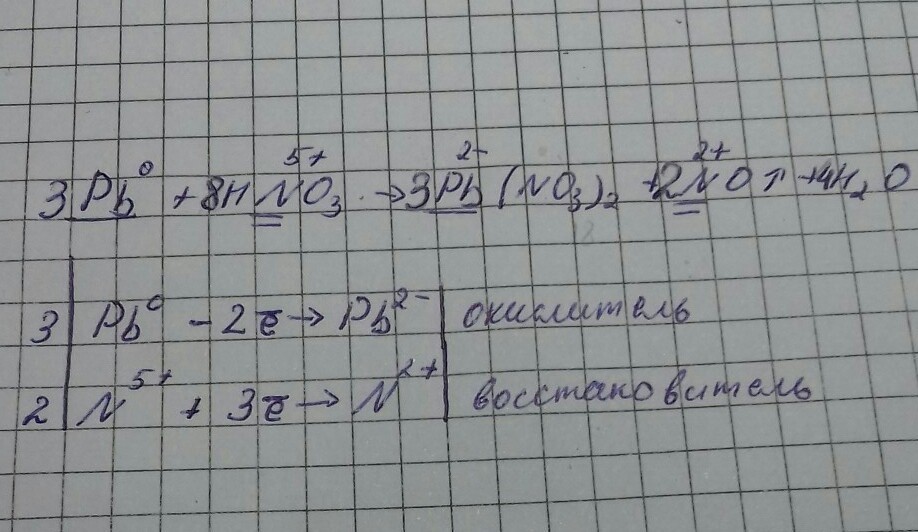 3Pb⁰ + 8HN⁵⁺O₃ → 3Pb²⁻(NO₃)₂ + 2N²⁺O↑ + 4H₂O
3 | Pb⁰ - 2ē → Pb²⁻ | окислитель
2 | N⁵⁺ + 3ē → N²⁺ | восстановитель